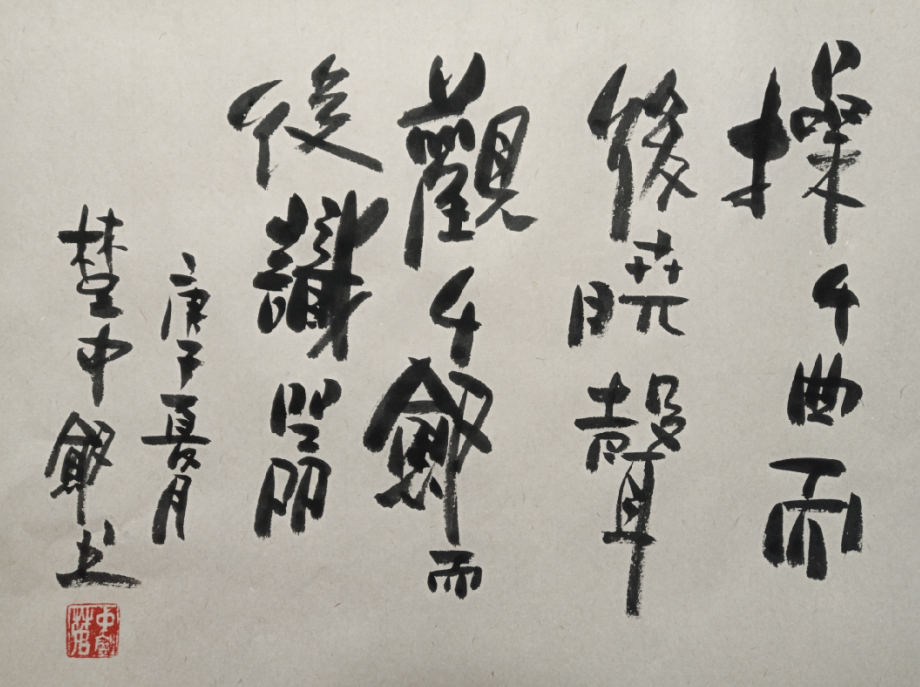 操千曲而
後曉聲
觀千劍而
後識器
庚子夏月
楚中劍书